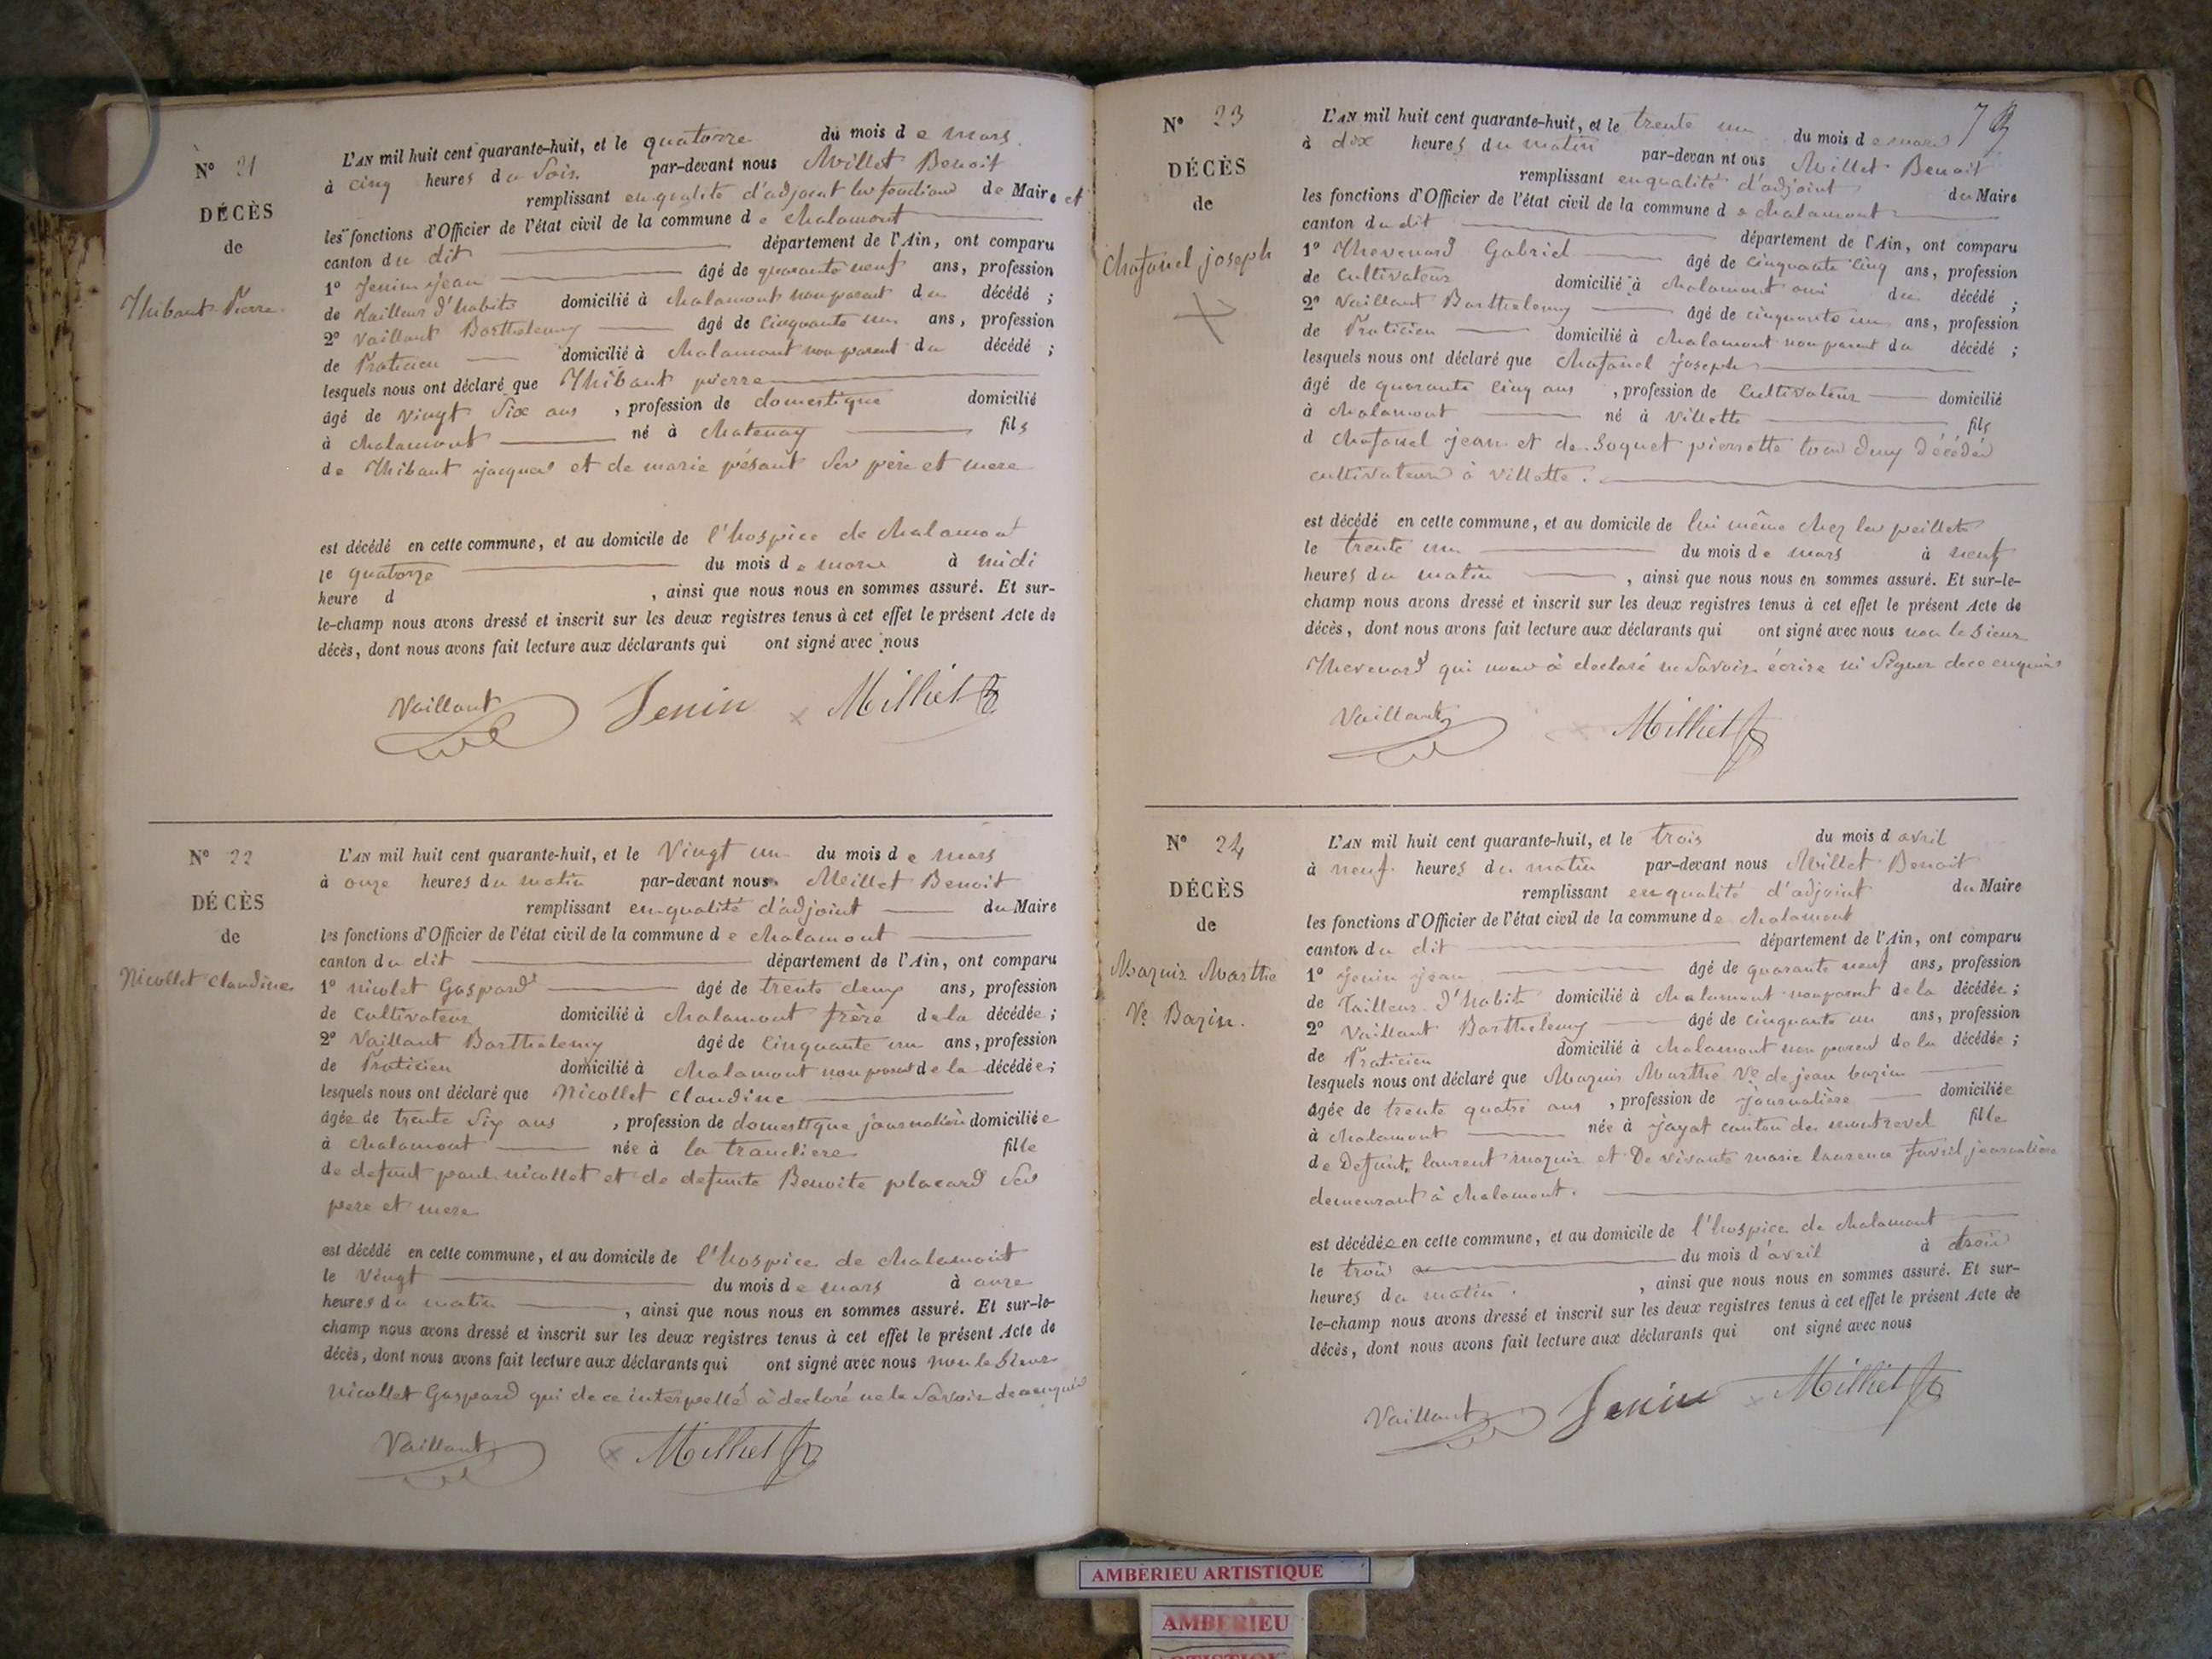 N° 21
DÉCÈS
de
Thibaut Pierre
L'AN mil huit cent quarante-huit, et le quatorze du mois de mars
à cinq heures du Soir par-devant nous Millet Benoit
remplissant en qualité d'adjoint les fonctions de Maire et
les fonctions d'Officier de l'état civil de la commune de chalamont
canton du dit département de l'Ain, ont comparu
1° Jenin jean âgé de quarante neuf ans, profession
de tailleur d'habits domicilié à chalamont non parent du décédé ;
2° Vaillant Barthelemy âgé de cinquante un ans, profession
de Praticien domicilié à chalamont non parent du décédé ;
lesquels nous ont déclaré que Thibaut pierre
âgé de vingt Six ans , profession de domestique domicilié
à chalamont né à chatenay fils
de Thibaut jacques et de marie pésant Ses père et mere
est décédé en cette commune, et au domicile de l'hospice de chalamont
le quatorze du mois de mars à midi
heure d , ainsi que nous nous en sommes assuré. Et sur-
le-champ nous avons dressé et inscrit sur les deux registres tenus à cet effet le présent Acte de
décès, dont nous avons fait lecture aux déclarants qui ont signé avec nous
Vaillant Jenin Milliet
N° 22
DÉCÈS
de
Nicollet Claudine
L'AN mil huit cent quarante-huit, et le Vingt un du mois de mars
à onze heures du matin par-devant nous Millet Benoit
remplissant en qualité d'adjoint du Maire
les fonctions d'Officier de l'état civil de la commune de chalamont
canton du dit département de l'Ain, ont comparu
1° nicolet Gaspard âgé de trente deux ans, profession
de Cultivateur domicilié à chalamont frère de la décédée ;
2° Vaillant Barthelemy âgé de cinquante un ans, profession
de Praticien domicilié à chalamont non parent de la décédée ;
lesquels nous ont déclaré que Nicollet Claudine
âgée de trente Six ans , profession de domestique journalière domiciliée
à chalamont née à la trancliere fille
de defunt paul nicollet et de defunte Benoite placard Ses
pere et mere
est décédé en cette commune, et au domicile de l'hospice de chalamont
le Vingt du mois de mars à onze
heures du matin , ainsi que nous nous en sommes assuré. Et sur-le-
champ nous avons dressé et inscrit sur les deux registres tenus à cet effet le présent Acte de
décès, dont nous avons fait lecture aux déclarants qui ont signé avec nous non le Sieur
Nicollet Gaspard qui de ce interpellé à declaré ne le Savoir de ce enquis
Vaillant Milliet
N° 23
DÉCÈS
de
Chafanel joseph
L'AN mil huit cent quarante-huit, et le trente un du mois de mars
à dix heures du matin par-devant nous Millet Benoit
remplissant en qualité d'adjoint du Maire
les fonctions d'Officier de l'état civil de la commune de chalamont
canton du dit département de l'Ain, ont comparu
1° Thevenard Gabriel âgé de cinquante cinq ans, profession
de Cultivateur domicilié à chalamont ami du décédé ;
2° Vaillant Barthelemy âgé de cinquante un ans, profession
de Praticien domicilié à chalamont non parent du décédé ;
lesquels nous ont déclaré que chafanel joseph
âgé de quarante cinq ans , profession de Cultivateur domicilié
à chalamont né à Villette fils
d chafanel jean et de Soquet pierrette tous deux décédés
cultivateurs à Villette.
est décédé en cette commune, et au domicile de lui même chez les peillets
le trente un du mois de mars à neuf
heures du matin , ainsi que nous nous en sommes assuré. Et sur-le-
champ nous avons dressé et inscrit sur les deux registres tenus à cet effet le présent Acte de
décès, dont nous avons fait lecture aux déclarants qui ont signé avec nous non le Sieur
Thevenard qui nous à declaré ne Savoir écrire ni Signer de ce enquis
Vaillant Milliet
N° 24
DÉCÈS
de
Mazuir Marthe
Ve Bazin.
L'AN mil huit cent quarante-huit, et le trois du mois d avril
à neuf heures du matin par-devant nous Millet Benoit
remplissant en qualité d'adjoint du Maire
les fonctions d'Officier de l'état civil de la commune de chalamont
canton du dit département de l'Ain, ont comparu
1° Jenin jean âgé de quarante neuf ans, profession
de Tailleur d'habits domicilié à chalamont non parent de la décédée ;
2° Vaillant Barthelemy âgé de cinquante un ans, profession
de Praticien domicilié à chalamont non parent de la décédée ;
lesquels nous ont déclaré que Mazuir Marthe Ve de jean bazin
âgée de trente quatre ans , profession de journalière domiciliée
à chalamont née à jayat canton de montrevel fille
de Defunt laurent mazuir et De vivante marie laurence favril journalière
demeurant à chalamont.
est décédée en cette commune, et au domicile de l'hospice de chalamont
le trois du mois d'avril à trois
heures du matin. , ainsi que nous nous en sommes assuré. Et sur-
le-champ nous avons dressé et inscrit sur les deux registres tenus à cet effet le présent Acte de
décès, dont nous avons fait lecture aux déclarants qui ont signé avec nous
Vaillant Jenin Milliet
AMBERIEU ARTISTIQUE
AMBERIEU
ARTISTIQUE